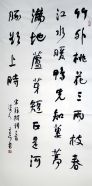 竹外桃花三两枝春
江水暖鸭先知蒌蒿
满地芦芽短正是河
豚欲上时